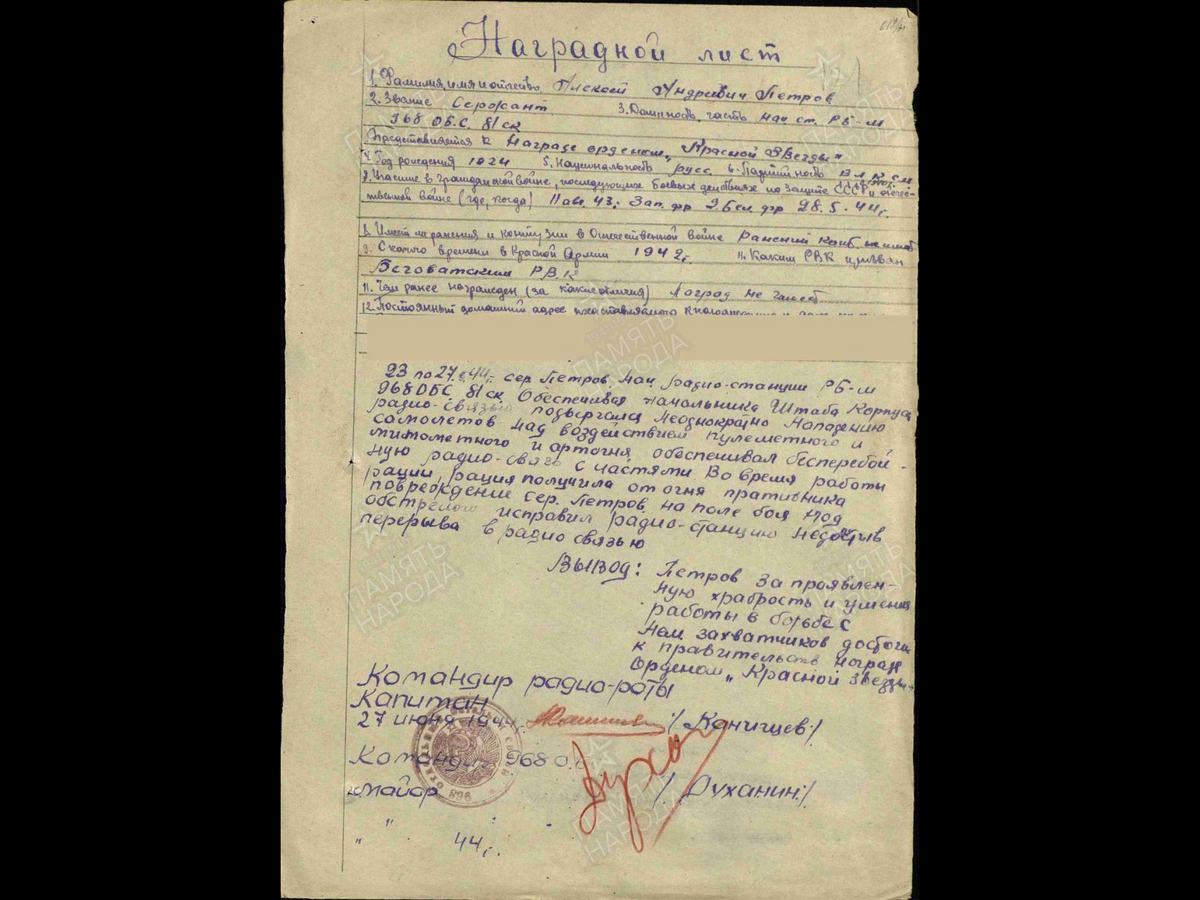 Наградной лист
1. Фамилия, имя и отчество Алексей Андревич Петров
2. Звание Сержант 3. Должность, часть нач ст. РБ-м
968 ОБС 81 ск
Представляется к Награде орденом „Красной Звезды"
4. Год рождения 1924 5. Национальность русс. 6. Партийность ВЛКСМ
7. Участие в гражданской войне, последующих боевых действиях по защите СССР и отече-
ственной войне (где, когда) 11 ав. 43. Зап. фр 2 Бел. фр 28.5-44г.
8. Имеет ли ранения и контузии в Отечественной войне
9. С какого времени в Красной Армии 1942г. 11. Каким РВК призван
Беговатским РВК
11. Чем ранее награжден (за какие отличия) Наград не имеет
12. Постоянный домашний адрес
23 по 27. 44г. сер. Петров. нач. радио-станции РБ-м
968 ОБС 81 ск Обеспечивая Начальника Штаба Корпуса
радио-связью подвергался Неоднократно Нападению
самолетов над воздействием пулеметного и
минометного и артогня, обеспечивал бесперебой-
ную радио-связь с частями Во время работы
рации, рация получила от огня пративника
повреждение сер. Петров на поле боя под
обстрелом исправил радио-станцию недопустив
перерыва в радио связью
Вывод: Петров за проявлен-
ную храбрость и умения
работы в борьбе с
Нем захватчиков достоин
к правительств Наград
Орденом „Красной Звезды"
Командир радио-роты
Капитан
27 июня 1944г. /Канищев/
Командир 968 О.
майор /Духанин/
" " 44г.
ПАМЯТЬ
НАРОДА